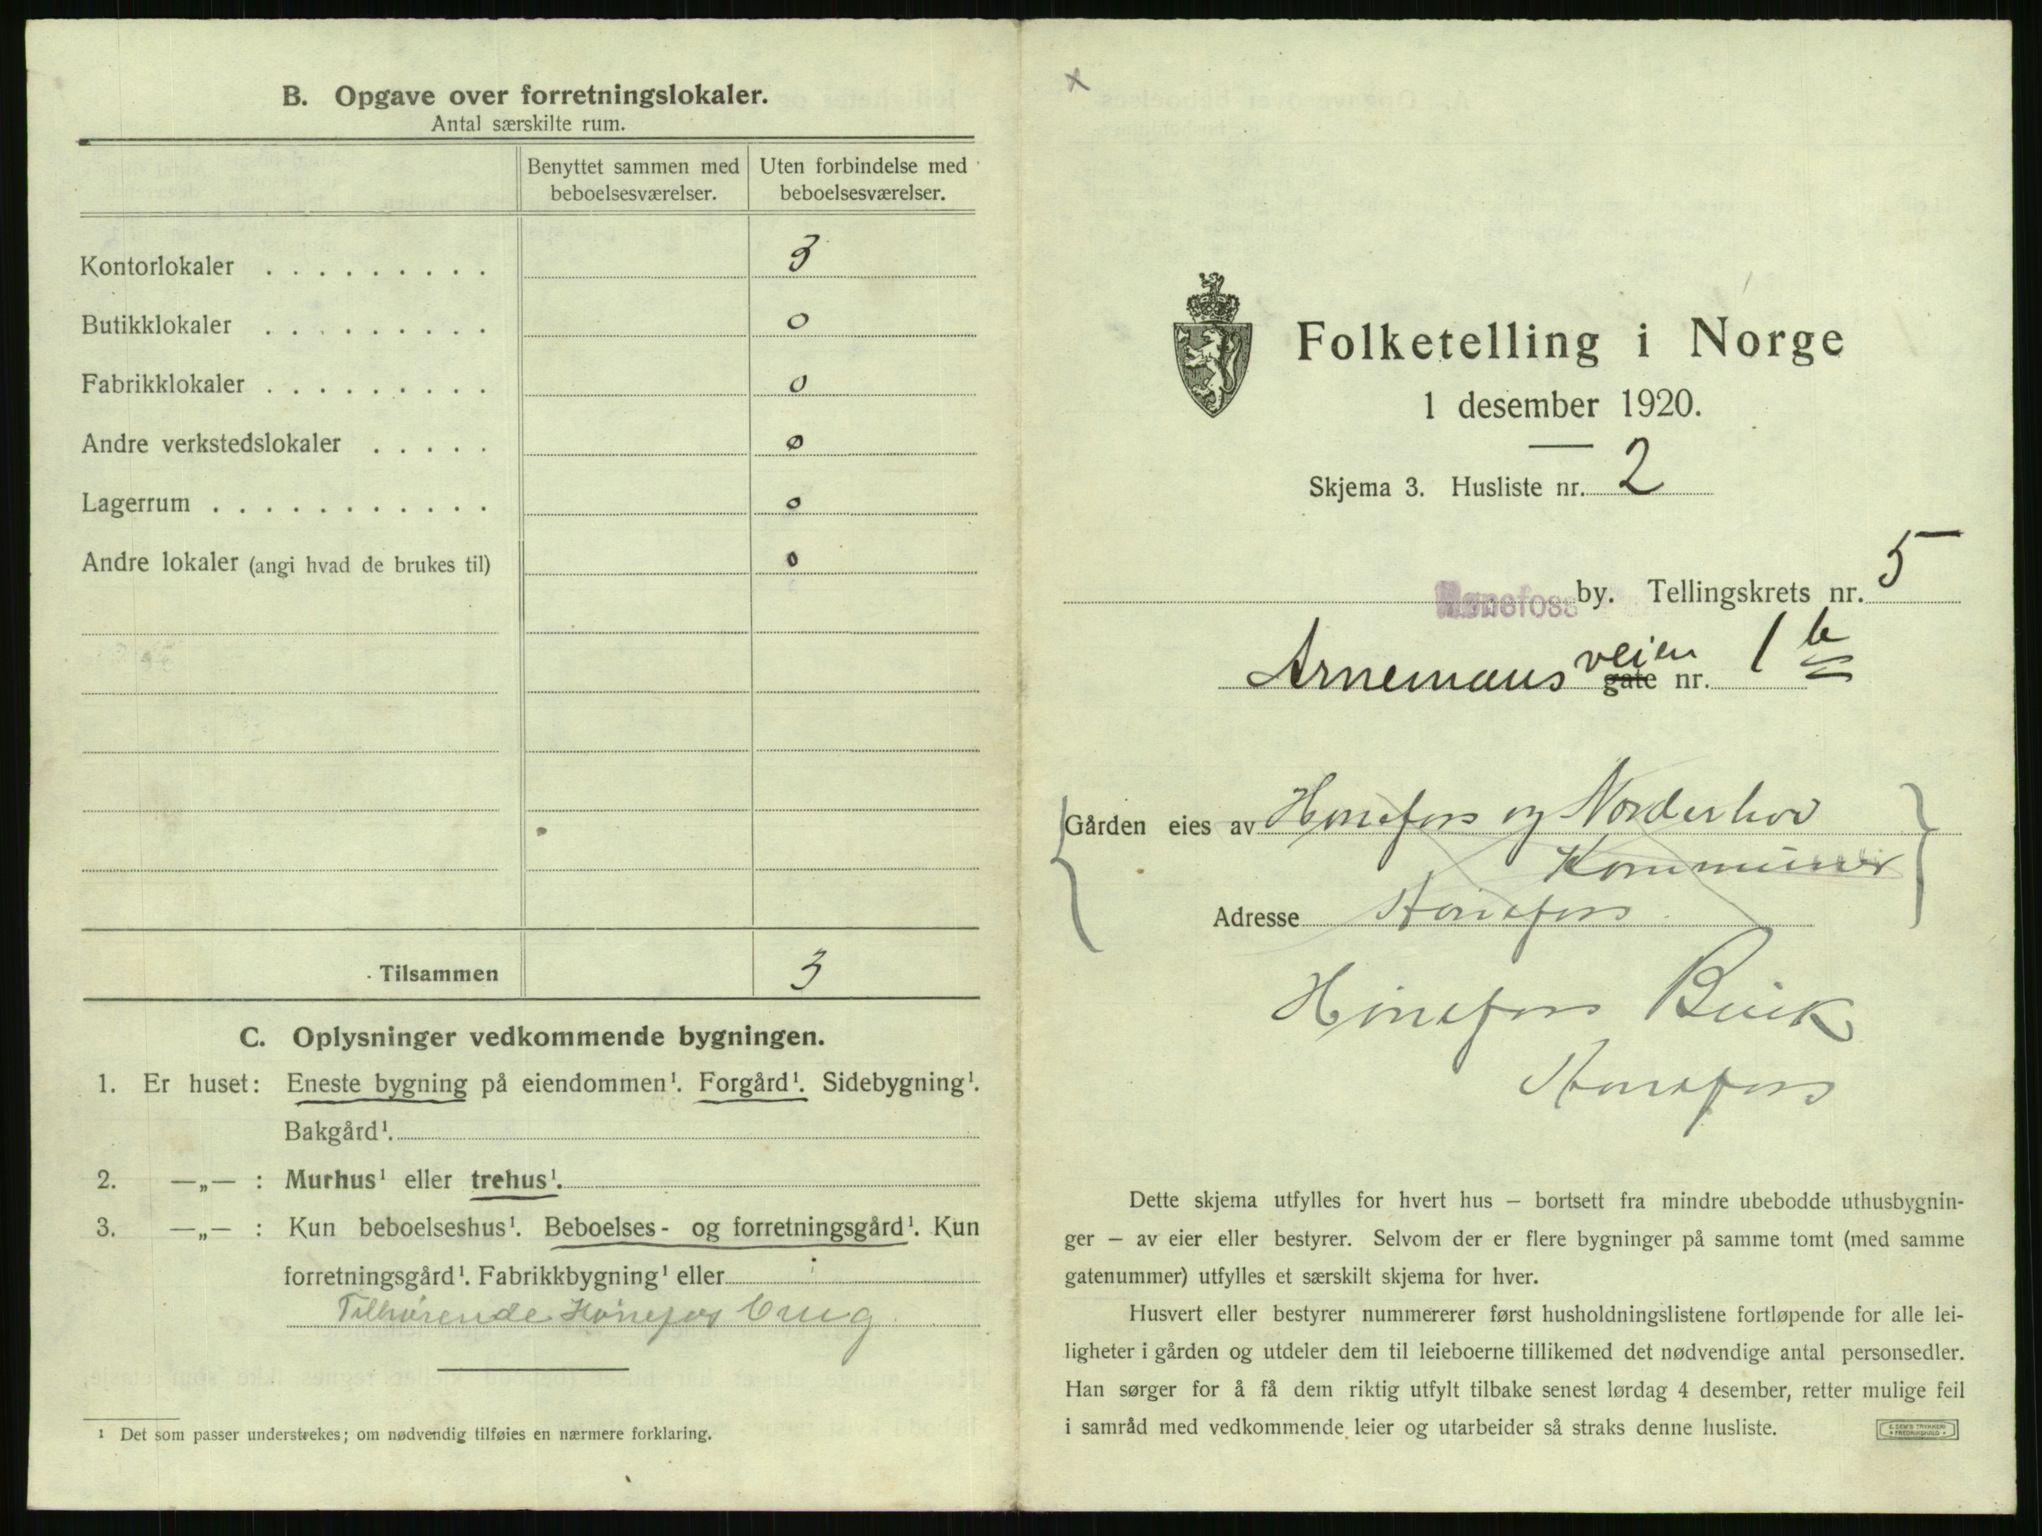 B. Opgave over forretningslokaler.
Antal særskilte rum.
Benyttet sammen med beboelsesværelser.
Uten forbindelse med beboelsesværelser.
Kontorlokaler . . . . . . . . . 3
Butikklokaler . . . . . . . . . 0
Fabrikklokaler . . . . . . . . . 0
Andre verkstedslokaler . . . . . 0
Lagerrum . . . . . . . . . . . . 0
Andre lokaler (angi hvad de brukes til) 0
Tilsammen 3
C. Oplysninger vedkommende bygningen.
1. Er huset: Eneste bygning på eiendommen¹. Forgård¹. Sidebygning¹.
Bakgård¹.
2. —„— : Murhus¹ eller trehus¹.
3. —„— : Kun beboelseshus¹. Beboelses- og forretningsgård¹. Kun
forretningsgård¹. Fabrikkbygning¹ eller
Tilhørende Hønefos Brug
¹ Det som passer understrekes; om nødvendig tilføies en nærmere forklaring.
Folketelling i Norge
1 desember 1920.
Skjema 3. Husliste nr. 2
Hønefoss by. Tellingskrets nr. 5
Arnemans veien gate nr. 1 b
Gården eies av Hønefoss og Norderhov
Kommuner
Adresse Hønefoss
Hønefoss Bruk
Hønefoss
Dette skjema utfylles for hvert hus – bortsett fra mindre ubebodde uthusbygnin-
ger – av eier eller bestyrer. Selvom der er flere bygninger på samme tomt (med samme
gatenummer) utfylles et særskilt skjema for hver.
Husvert eller bestyrer nummererer først husholdningslistene fortløpende for alle lei-
ligheter i gården og utdeler dem til leieboerne tillikemed det nødvendige antal personsedler.
Han sørger for å få dem riktig utfylt tilbake senest lørdag 4 desember, retter mulige feil
i samråd med vedkommende leier og utarbeider så straks denne husliste.